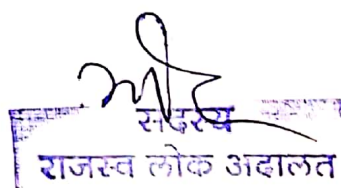 सदस्य
राजस्व लोक अदालत